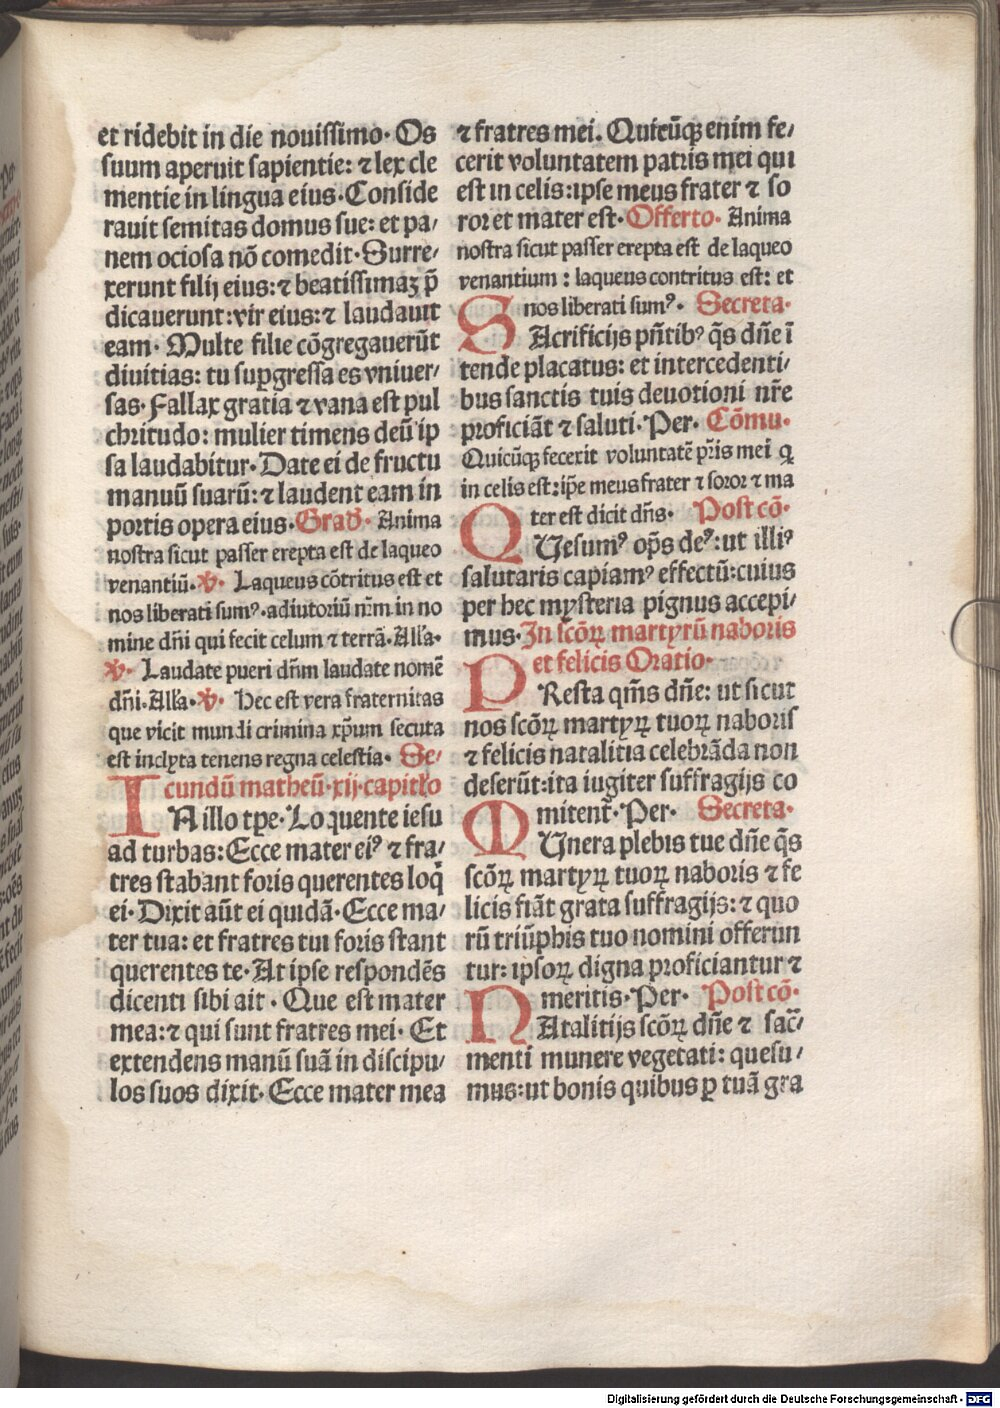 et ridebit in die nouissimo· Os
suum aperuit sapientie: ⁊ lex cle
mentie in lingua eius· Conside
rauit semitas domus sue: et pa/
nem ociosa nō comedit· Surre/
xerunt filij eius: ⁊ beatissimaꝫ p̄
dicauerunt: vir eius: ⁊ laudauit
eam· Multe filie cōgregauerūt
diuitias: tu suꝑgressa es vniuer/
sas· Fallax gratia ⁊ vana est pul
chritudo: mulier timens deū ip
sa laudabitur· Date ei de fructu
manuū suarū: ⁊ laudent eam in
portis opera eius· Grad̄· Anima
nostra sicut passer erepta est de laqueo
venantiū· ℣· Laqueus cōtritus est et
nos liberati sumꝰ· adiutoriū nr̄m in no
mine dn̄i qui fecit celum ⁊ terrā· All'a·
℣· Laudate pueri dn̄m laudate nomē
dn̄i· All'a· ℣· Hec est vera fraternitas
que vicit mundi crimina xp̄um secuta
est inclyta tenens regna celestia· Se/
cundū matheū· xij· capitl'o
IN illo tp̄e· Loquente iesu
ad turbas: Ecce mater eiꝰ ⁊ fra/
tres stabant foris querentes loq̄
ei· Dixit aūt ei quidā· Ecce ma/
ter tua: et fratres tui foris stant
querentes te· At ipse respondēs
dicenti sibi ait· Que est mater
mea: ⁊ qui sunt fratres mei· Et
extendens manū suā in discipu/
los suos dixit· Ecce mater mea
⁊ fratres mei. Quicūqꝫ enim fe/
cerit voluntatem patris mei qui
est in celis: ipse meus frater ⁊ so
ror et mater est· Offerto· Anima
nostra sicut passer erepta est de laqueo
venantium: laqueus contritus est: et
nos liberati sumꝰ· Secreta·
SAcrificijs pn̄tibꝰ q̄s dn̄e ī
tende placatus: et intercedenti/
bus sanctis tuis deuotioni nr̄e
proficiāt ⁊ saluti· Per· Cōmu·
Quicūqꝫ fecerit voluntatē pr̄is mei q̄
in celis est: ip̄e meus frater ⁊ soror ⁊ ma
ter est dicit dn̄s· Post cō·
QUesumꝰ op̄s deꝰ: ut illiꝰ
salutaris capiamꝰ effectū: cuius
per hec mysteria pignus accepi/
mus· In scōꝝ martyrū naboris
et felicis Oratio·
PResta qm̄s dn̄e: ut sicut
nos scōꝝ martyꝝ tuoꝝ naboris
⁊ felicis natalitia celebrāda non
deserūt: ita iugiter suffragijs co
mitent̄· Per· Secreta·
MUnera plebis tue dn̄e q̄s
scōꝝ martyꝝ tuoꝝ naboris ⁊ fe
licis fiāt grata suffragijs: ⁊ quo
rū triūphis tuo nomini offerun
tur: ipsoꝝ digna proficiantur ⁊
meritis· Per· Post cō·
NAtalitijs scōꝝ dn̄e ⁊ sac̄/
menti munere vegetati: quesu/
mus: ut bonis quibus ꝑ tuā gra
Digitalisierung gefördert durch die Deutsche Forschungsgemeinschaft - DFG